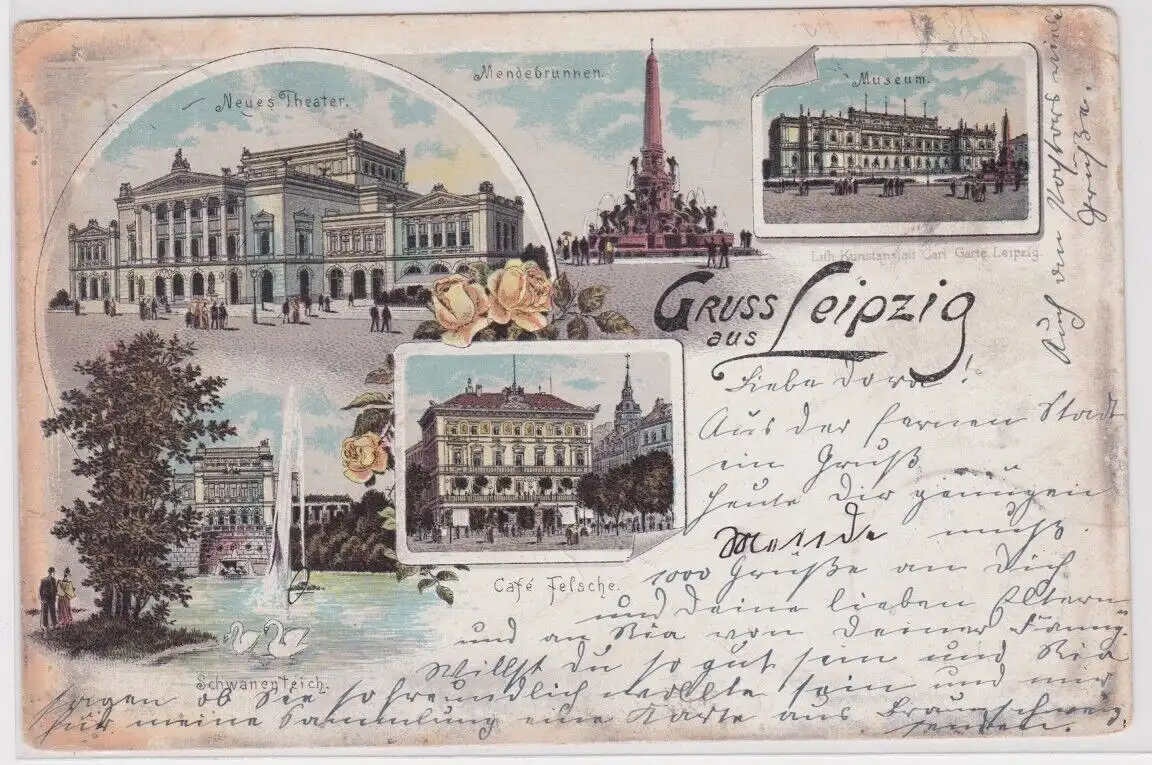 Neues Theater.
Mendebrunnen.
Museum.
Lith. Kunstanstalt Carl Garte, Leipzig.
Gruss
aus Leipzig
Café Felsche.
Schwanenteich.
Liebe Dora!
Aus der fernen Stadt
ein Gruß
heute Dir genügen
muß.
1000 Grüße an Dich
und deine lieben Eltern
und an Ria von Deiner
Willst Du so gut sein und Ria
sagen ob Sie so freundlich wollte sein und mir
für meine Sammlung eine Karte aus Braunschweig
senden.
Auch an
Grüße.